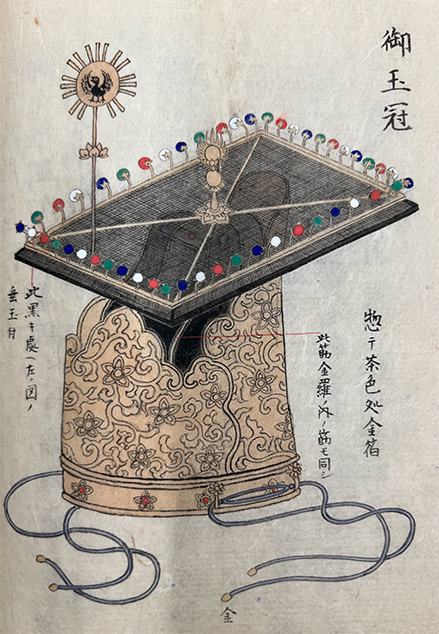 御玉冠
惣テ茶色処金箔
此筋金羅ノ内ノ筋モ同シ
此黒キ処ヘ左ノ図ノ
垂玉付
金